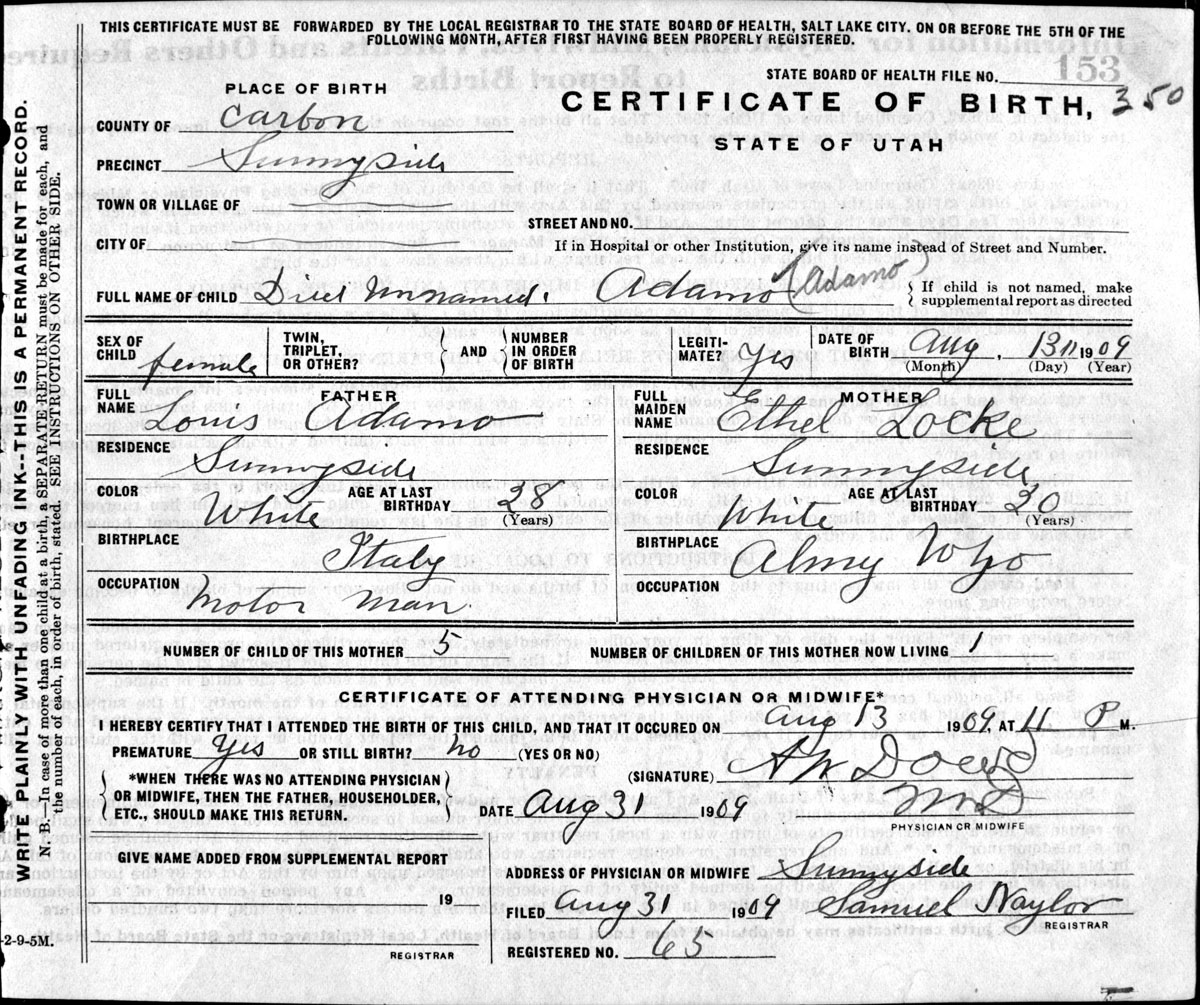 THIS CERTIFICATE MUST BE FORWARDED BY THE LOCAL REGISTRAR TO THE STATE BOARD OF HEALTH, SALT LAKE CITY. ON OR BEFORE THE 5TH OF THE
FOLLOWING MONTH, AFTER FIRST HAVING BEEN PROPERLY REGISTERED.
WRITE PLAINLY WITH UNFADING INK--THIS IS A PERMANENT RECORD.
N. B.—In case of more than one child at a birth, a SEPARATE RETURN must be made for each, and
the number of each, in order of birth, stated. SEE INSTRUCTIONS ON OTHER SIDE.
STATE BOARD OF HEALTH FILE NO. 153
PLACE OF BIRTH
CERTIFICATE OF BIRTH, 350
COUNTY OF Carbon
STATE OF UTAH
PRECINCT Sunnyside
TOWN OR VILLAGE OF
STREET AND NO.
CITY OF
If in Hospital or other Institution, give its name instead of Street and Number.
FULL NAME OF CHILD Died Unnamed. Adamo (Adamo)
If child is not named, make
supplemental report as directed
SEX OF CHILD female
TWIN, TRIPLET, OR OTHER?
AND
NUMBER IN ORDER OF BIRTH
LEGITIMATE? Yes
DATE OF BIRTH Aug. 13 1909
(Month) (Day) (Year)
FATHER
FULL NAME Louis Adamo
RESIDENCE Sunnyside
COLOR White
AGE AT LAST BIRTHDAY 28
(Years)
BIRTHPLACE Italy
OCCUPATION Motor Man
MOTHER
FULL MAIDEN NAME Ethel Locke
RESIDENCE Sunnyside
COLOR White
AGE AT LAST BIRTHDAY 30
(Years)
BIRTHPLACE Almy Wyo
OCCUPATION
NUMBER OF CHILD OF THIS MOTHER 5
NUMBER OF CHILDREN OF THIS MOTHER NOW LIVING 1
CERTIFICATE OF ATTENDING PHYSICIAN OR MIDWIFE*
I HEREBY CERTIFY THAT I ATTENDED THE BIRTH OF THIS CHILD, AND THAT IT OCCURRED ON Aug 13 1909, AT 11 P M.
PREMATURE Yes OR STILL BIRTH? no (YES OR NO)
(SIGNATURE) A W Dowd
*WHEN THERE WAS NO ATTENDING PHYSICIAN
OR MIDWIFE, THEN THE FATHER, HOUSEHOLDER,
ETC., SHOULD MAKE THIS RETURN.
DATED Aug 31 1909
MD
PHYSICIAN OR MIDWIFE
GIVE NAME ADDED FROM SUPPLEMENTAL REPORT
ADDRESS OF PHYSICIAN OR MIDWIFE Sunnyside
19
FILED Aug 31 1909 Samuel Naylor
REGISTRAR
REGISTRAR
REGISTERED NO. 65
2-9-5M.